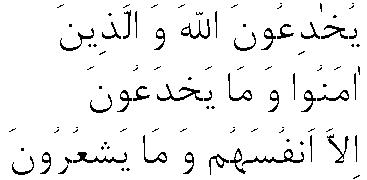 يُخٰدِعُونَ اللّٰهَ وَ الَّذِينَ
اٰمَنُوا وَ مَا يَخدَعُونَ
اِلاَّ اَنفُسَهُم وَ مَا يَشعُرُونَ